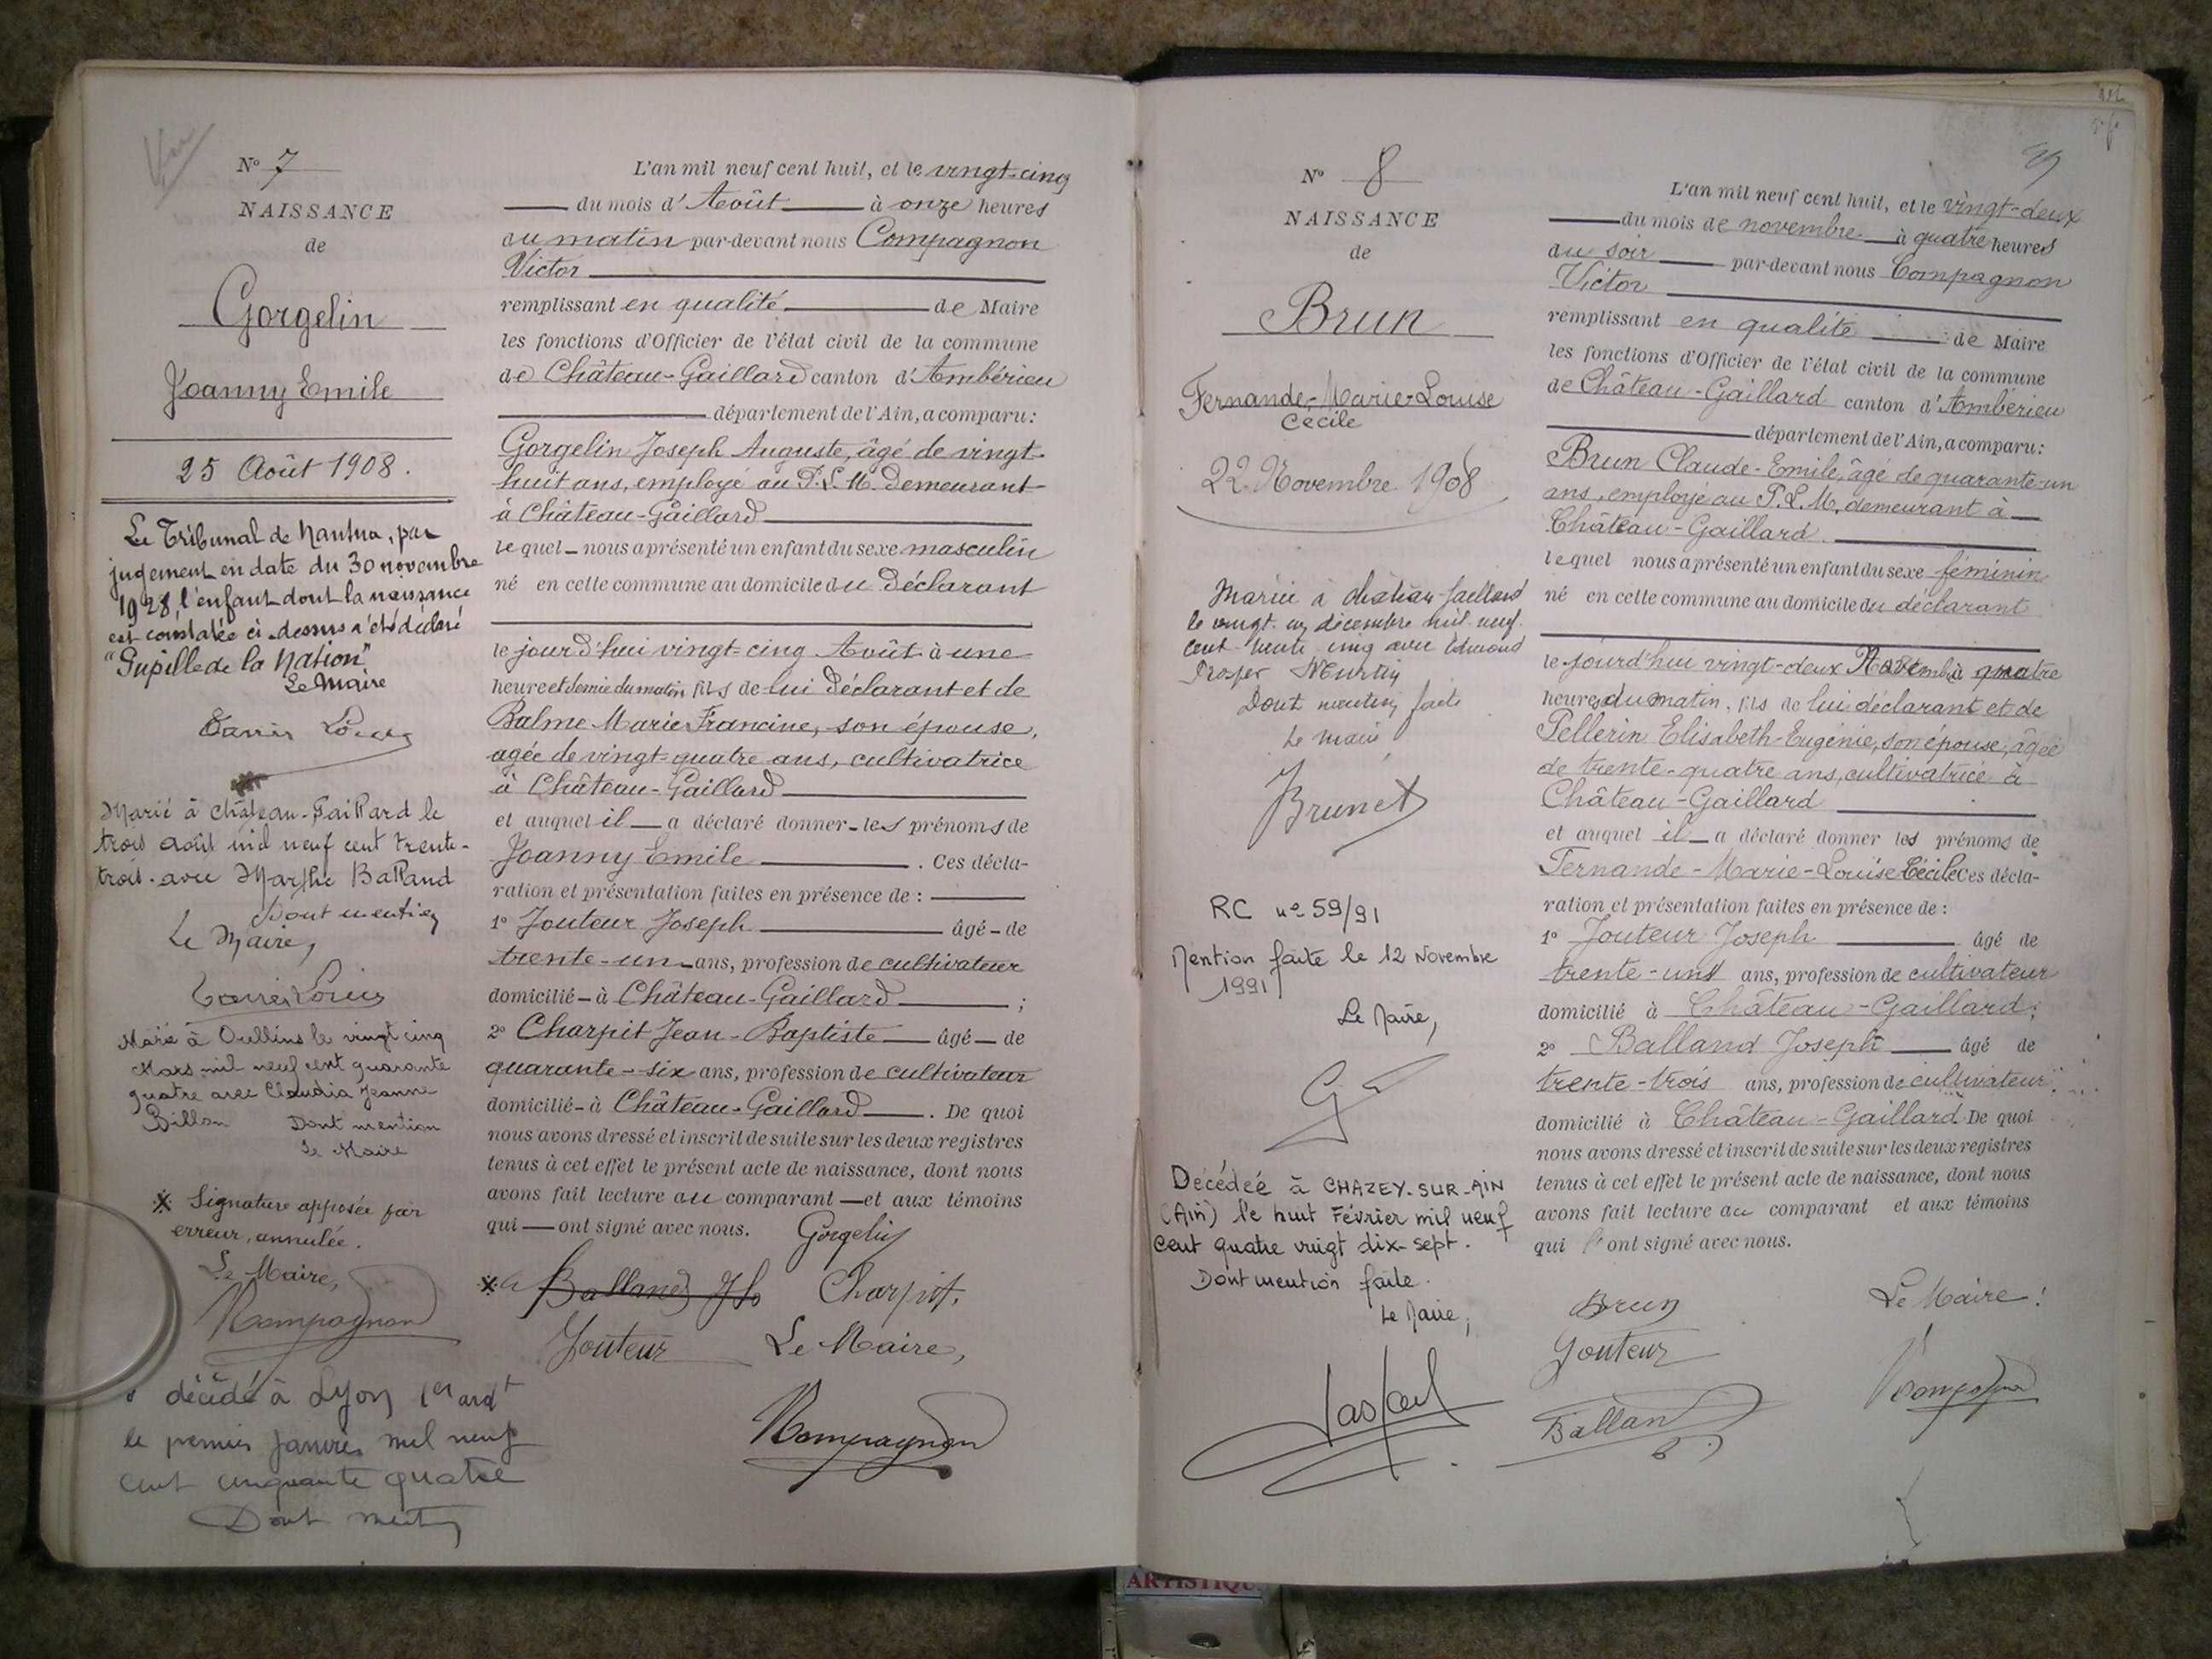 N° 7
NAISSANCE
de
Gorgelin
Joanny Emile
25 Août 1908.
Le Tribunal de Nantua, par
jugement en date du 30 novembre
1928, l'enfant dont la naissance
est constatée ci-dessus a été déclaré
"Pupille de la Nation"
Le Maire
Marié à château-Gaillard le
trois août mil neuf cent trente-
trois avec Marthe Balland
Dont mention
Le Maire,
Marié à Oullins le vingt cinq
Mars mil neuf cent quarante
quatre avec Claudia Jeanne
Billon Dont mention
Le Maire
* Signature apposée par
erreur, annulée.
Le Maire,
Compagnon
décédé à Lyon 1er ardt
le premier janvier mil neuf
cent cinquante quatre
Dont mention
L'an mil neuf cent huit, et le vingt-cinq
du mois d'Août à onze heures
du matin par-devant nous Compagnon
Victor
remplissant en qualité de Maire
les fonctions d'Officier de l'état civil de la commune
de Château-Gaillard canton d'Ambérieu
département de l'Ain, a comparu:
Gorgelin Joseph Auguste, âgé de vingt-
huit ans, employé au P.L.M. demeurant
à Château-Gaillard
lequel nous a présenté un enfant du sexe masculin
né en cette commune au domicile du déclarant
le jourd'hui vingt-cinq Août à une
heure et demie du matin, fils de lui déclarant et de
Balme Marie Francine, son épouse,
agée de vingt-quatre ans, cultivatrice
à Château-Gaillard
et auquel il a déclaré donner les prénoms de
Joanny Emile. Ces décla-
ration et présentation faites en présence de:
1° Jouteur Joseph âgé de
trente-un ans, profession de cultivateur
domicilié à Château-Gaillard;
2° Charpit Jean-Baptiste âgé de
quarante-six ans, profession de cultivateur
domicilié à Château-Gaillard. De quoi
nous avons dressé et inscrit de suite sur les deux registres
tenus à cet effet le présent acte de naissance, dont nous
avons fait lecture au comparant et aux témoins
qui ont signé avec nous. Gorgelin
* Balland Charpit.
Jouteur Le Maire,
Compagnon
N° 8
NAISSANCE
de
Brun
Fernande-Marie-Louise
Cécile
22 Novembre 1908
Mariée à château-Gaillard
le vingt un décembre mil neuf
cent trente cinq avec Edmond
Prosper
Dont mention faite
Le maire
Brunet
RC n° 59/91
Mention faite le 12 Novembre
1991
Le Maire,
Décédée à CHAZEY-SUR-AIN
(Ain) le huit Février mil neuf
cent quatre vingt dix-sept.
Dont mention faite.
Le Maire,
L'an mil neuf cent huit, et le vingt-deux
du mois de novembre à quatre heures
du soir par-devant nous Compagnon
Victor
remplissant en qualité de Maire
les fonctions d'Officier de l'état civil de la commune
de Château-Gaillard canton d'Ambérieu
département de l'Ain, a comparu:
Brun Claude-Emile, âgé de quarante-un
ans, employé au P.L.M, demeurant à
Château-Gaillard.
lequel nous a présenté un enfant du sexe féminin
né en cette commune au domicile du déclarant
le jourd'hui vingt-deux Novembre à quatre
heures du matin, fils de lui déclarant et de
Pellerin Elisabeth-Eugénie, son épouse, âgée
de trente-quatre ans, cultivatrice à
Château-Gaillard
et auquel il a déclaré donner les prénoms de
Fernande-Marie-Louise Cécile Ces décla-
ration et présentation faites en présence de:
1° Jouteur Joseph âgé de
trente-uns ans, profession de cultivateur
domicilié à Château-Gaillard;
2° Balland Joseph âgé de
trente-trois ans, profession de cultivateur
domicilié à Château-Gaillard. De quoi
nous avons dressé et inscrit de suite sur les deux registres
tenus à cet effet le présent acte de naissance, dont nous
avons fait lecture au comparant et aux témoins
qui ont signé avec nous.
Brun Le Maire!
Jouteur Compagnon
Balland
ARTISTIQU